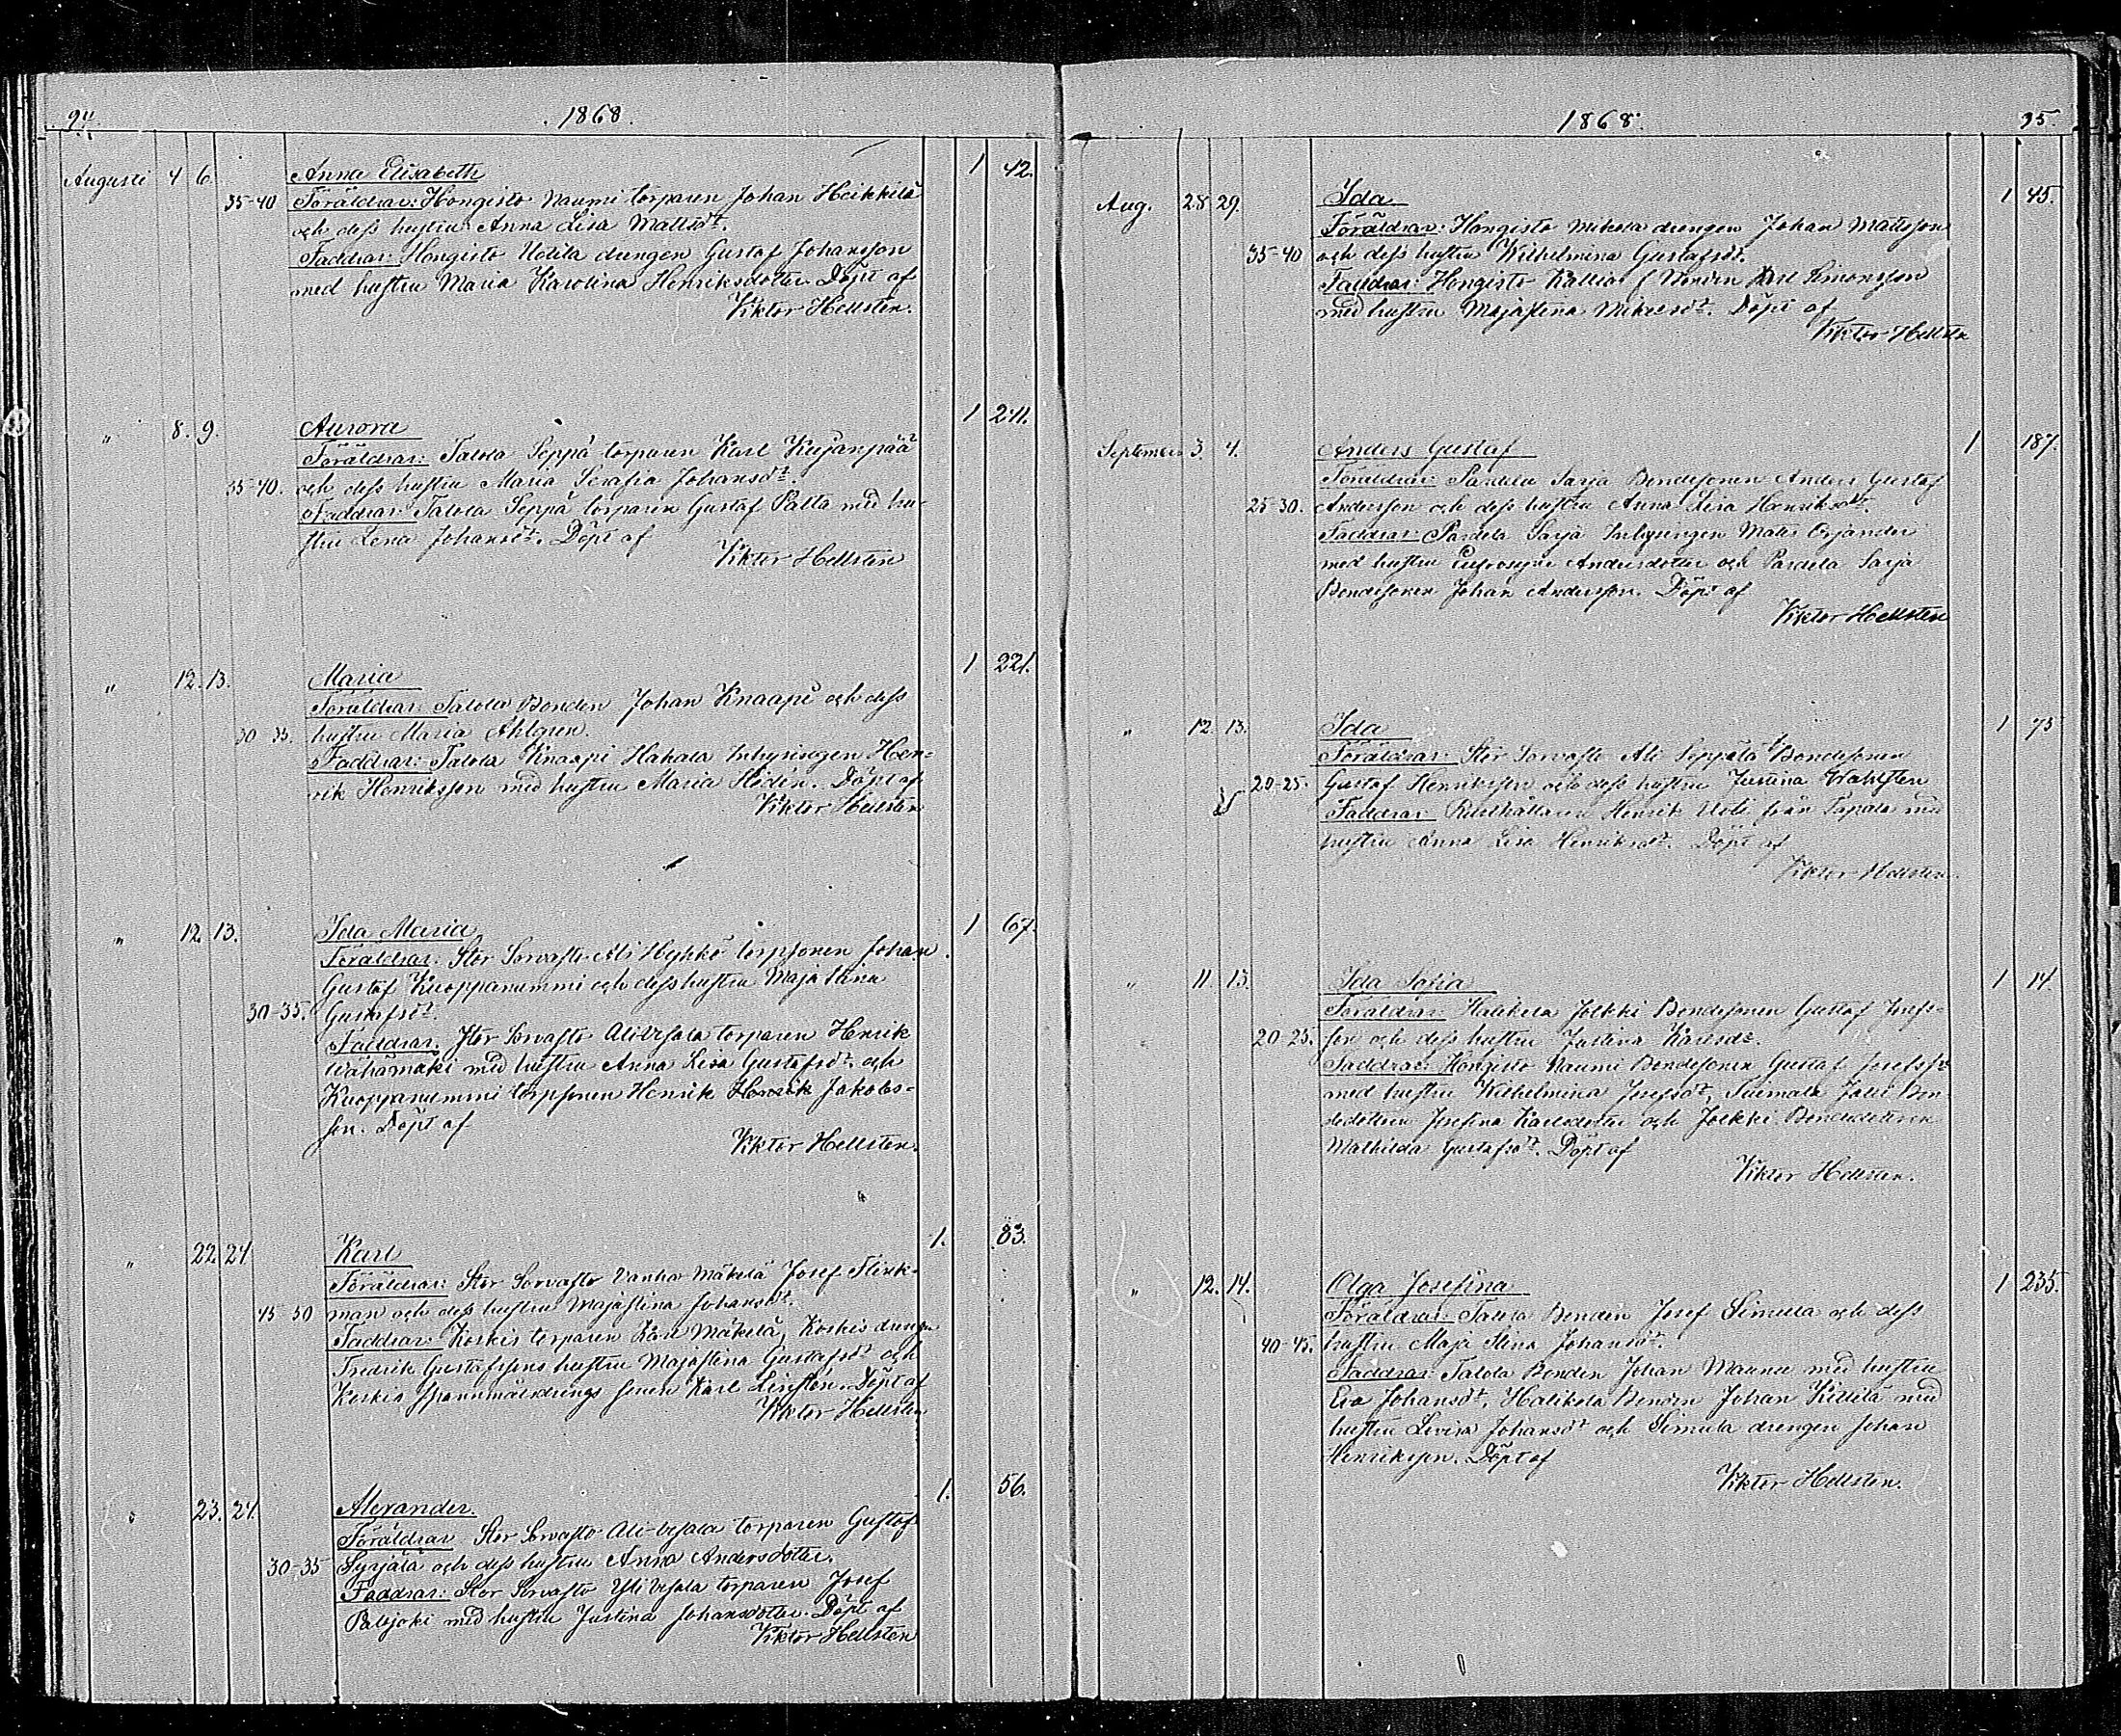 94. 1868.
Augusti 4 6. Anna Elisabeth 1 42.
35-40 Föräldrar: Hongisto Naumi torparen Johan Heikkilä
och dess hustru Anna Lisa Mattsdt.
Faddrar: Hongisto Uotila drengen Gustaf Johansson
med hustru Maria Karolina Henriksdotter. Döpt af
Viktor Hellsten.
" 8. 9. Aurora 1 211.
Föräldrar: Talola Seppä torparen Karl Kujanpää
35-40. och dess hustru Maria Serafia Johansdt.
Faddrar: Talola Seppä torparen Gustaf Palta med hu-
stru Lena Johansdt. Döpt af
Viktor Hellsten
" 12. 13. Maria 1 221.
Föräldrar: Talola Bonden Johan Knaapi och dess
30 35. hustru Maria Ahlgren.
Faddrar: Talola Knaapi Hakala Inhysingen Hen-
rik Henriksson med hustru Maria Hedén. Döpt af
Viktor Hellsten
" 12. 13. Ida Maria 1 67.
Föräldrar: Stor Sorvasto Ali Hysskö torpsonen Johan
Gustaf Kuoppanummi och dess hustru Maja Stina
30-35. Gustafsdt.
Faddrar: Stor Sorvasto Ali-Vesala torparen Henrik
Wähämäki med hustru Anna Lisa Gustafsdt. och
Kuoppanummi torpsonen Henrik Henrik Jakobs-
son. Döpt af
Viktor Hellsten.
" 22. 24 Karl 1. 83.
Föräldrar: Stor Sorvasto Vanha Mäkelä Josef Flink-
45 50 man och dess hustru Majastina Johansdt.
Faddrar: Koskis torparen Karl Mäkelä, Koskis drengen
Fredrik Gustafssons hustru Majastina Gustafsdt och
Koskis Spannmålsdrengs sonen Karl Döpt af
Viktor Hellsten
" 23. 24. Alexander. 1. 56.
Föräldrar Stor Sorvasto Ali-Vesala torparen Gustaf
30-35 Syrjälä och dess hustru Anna Andersdotter.
Faddrar: Stor Sorvasto Yli Vesala torparen Josef
Paljoki med hustru Justina Johansdotter. Döpt af
Viktor Hellsten
1868. 95.
Aug. 28 29. Ida 1 45.
Föräldrar: Hongisto Mikola drengen Johan Mattsson
35-40 och dess hustru Wilhelmina Gustafsdt.
Faddrar: Hongisto Kallio Bonden Karl Simonsson
med hustru Majastina Mikelsdt. Döpt af
Viktor Hellsten
September 3. 4. Anders Gustaf 1 187.
Föräldrar: Pardela Sarja Bondesonen Anders Gustaf
25-30. Andersson och dess hustru Anna Lisa Henriksdt.
Faddrar: Pardela Sarja Inhysingen Mats Orjander
med hustru Eufrosyne Andersdotter och Pardela Sarja
Bondesonen Johan Andersson. Döpt af
Viktor Hellsten
" 12. 13. Ida 1 75
Föräldrar: Stor Sorvasto Ali Seppälä Bondesonen
20-25. Gustaf Henriksson och dess hustru Justina Wahlsten
Faddrar Rusthållaren Henrik Uoti från med
hustru Anna Lisa Henriksdt. Döpt af
Viktor Hellsten.
" 11. 13. Ida Sofia 1 14.
Föräldrar: Halikola Jolkki Bondesonen Gustaf Josefs-
20-25. son och dess hustru Justina Karlsdt.
Faddrar: Hongisto Naumi Bondesonen Gustaf Josefsson
med hustru Wilhelmina Josefsdt, Bon-
dedottren Josefina Karlsdotter och Jolkki Bondedottren
Mathilda Gustafsdt. Döpt af
Viktor Hellsten.
" 12. 14. Olga Josefina 1 235.
Föräldrar: Talola Bonden Josef Simula och dess
40-45. hustru Maja Stina Johansdt.
Faddrar: Talola Bonden Johan Maunu med hustru
Eva Johansdt, Halikola Bonden Johan Killilä med
hustru Lovisa Johansdt och Simula drengen Johan
Henriksson. Döpt af
Viktor Hellsten.